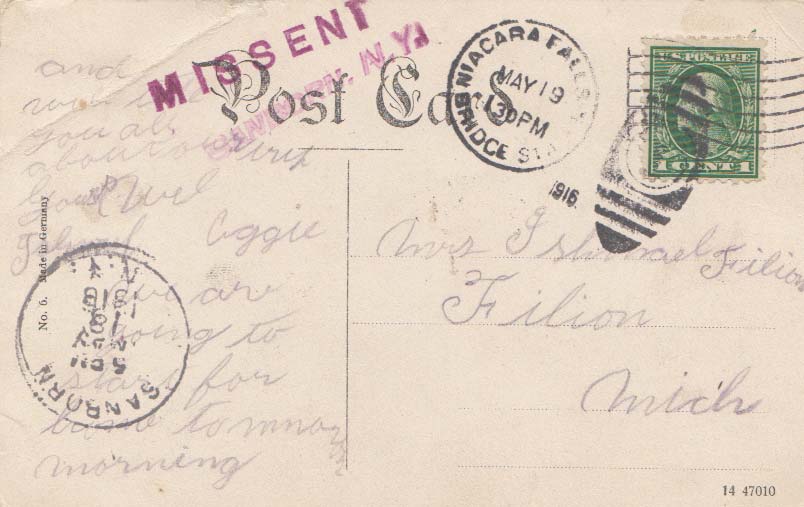 MISSENT
SANBORN, N.Y.
Post Card
NIAGARA FALLS
BRIDGE STA.
MAY 19
1130PM
1916.
U.S. POSTAGE
1 CENT 1
and
you all
about our trip
Aggie
we are
going to
start for
home tomnory
morning
No. 6. Made in Germany
SANBORN
Mrs Ishmael Filion
Filion
Mich
14 47010